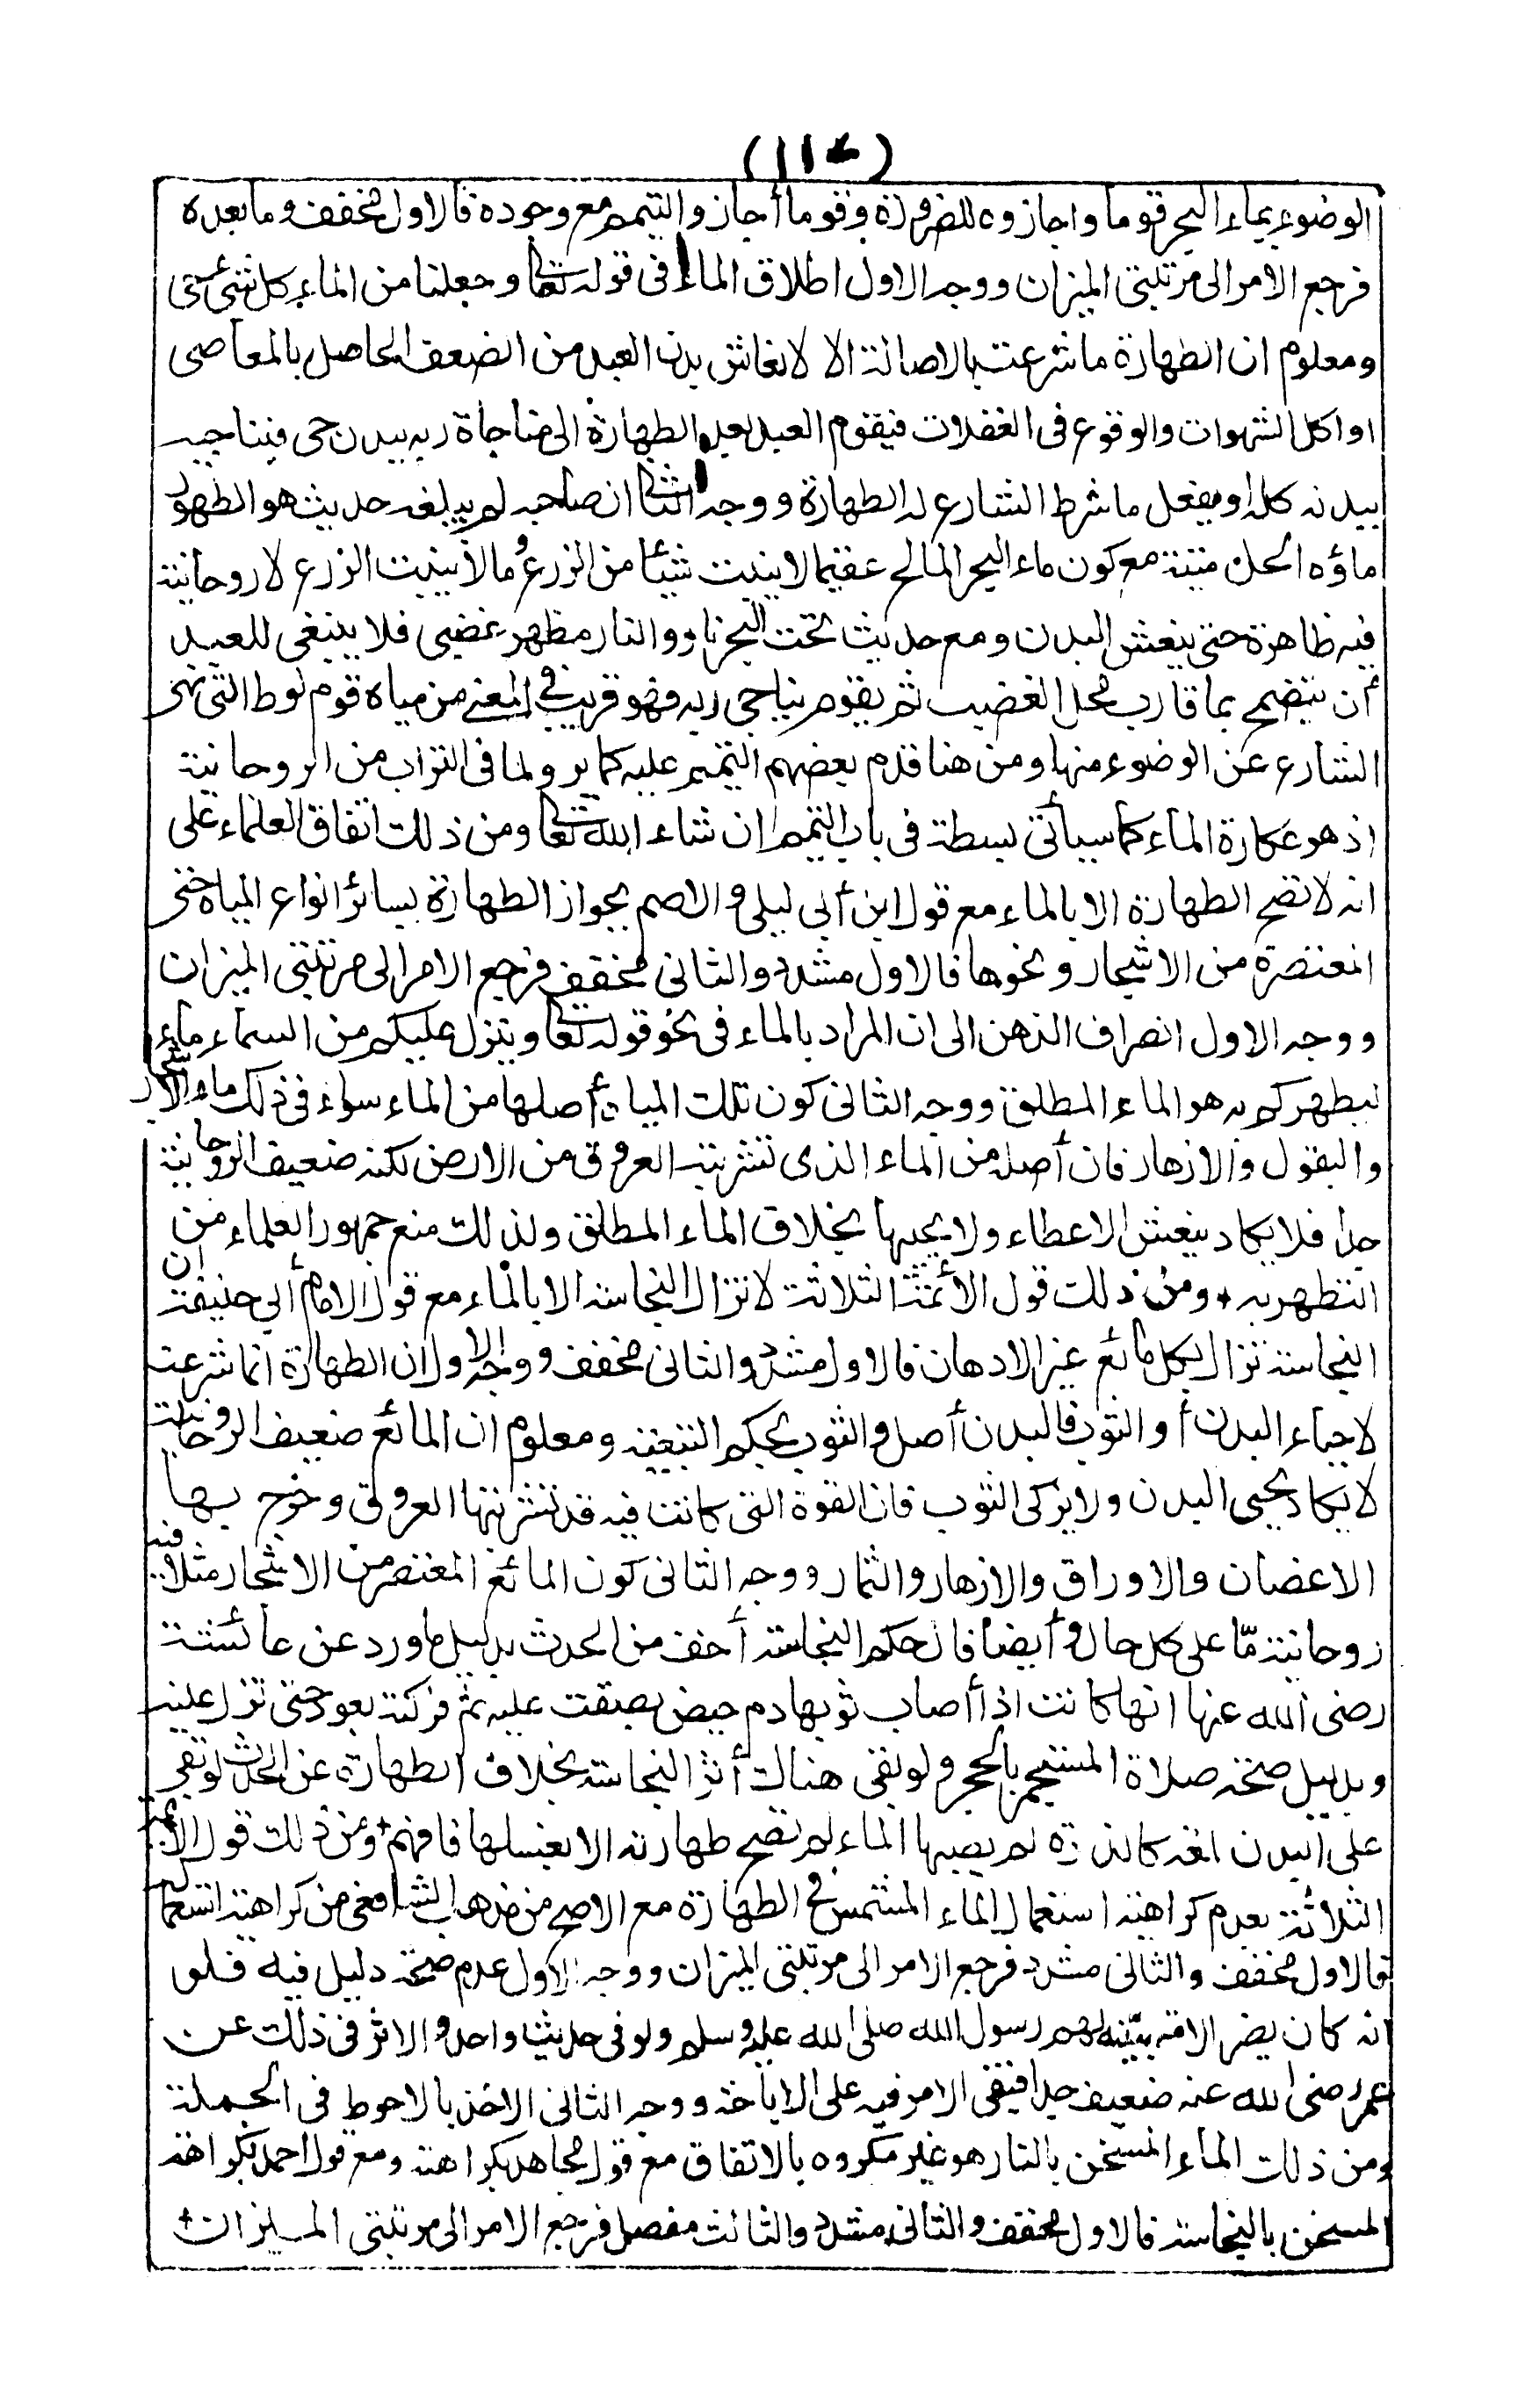 (١١٤)
الوضوء بماء البحر قوما واجازوه للضرورة وقوما أجازوا التيمم مع وجوده فالاول مخفف وما بعده
فرجع الامر الى مرتبتى الميزان ووجه الاول اطلاق الماء فى قوله تعا وجعلنا من الماء كل شئ حى
ومعلوم ان الطهارة ما شرعت بالاصالة الا لانعاش بدن العبد من الضعف الحاصل بالمعاصى
او اكل الشهوات والوقوع فى الغفلات فيقوم العبد بعد الطهارة الى مناجاة ربه ببدن حى فيناجيه
ببدنه كله او يفعل ما شرط الشارع له الطهارة ووجه الثا ان صاحبه لم يبلغه حديث هو الطهور
ماؤه الحل ميتته مع كون ماء البحر المالح عقيما لا ينبت شيئا من الزرع وما لا ينبت الزرع لا روحانية
فيه ظاهرة حتى ينعش البدن ومع حديث تحت البحر نار والنار مظهر غضبى فلا ينبغى للعبد
أن يتضمخ بما قارب محل الغضب ثم يقوم يناجى ربه فهو قريب فى المعنى من مياه قوم لوط التى نهى
الشارع عن الوضوء منها ومن هنا قدم بعضهم التيمم عليه كما يرو لما فى التراب من الروحانية
اذ هو عكارة الماء كما سيأتى بسطه فى باب التيمم ان شاء الله تعا ومن ذلك اتفاق العلماء على
انه لا تصح الطهارة الا بالماء مع قول ابن أبى ليلى والاصم بجواز الطهارة بسائر انواع المياه حتى
المعتصرة من الاشجار ونحوها فالاول مشدد والثانى مخفف فرجع الامر الى مرتبتى الميزان
ووجه الاول انصراف الذهن الى ان المراد بالماء فى نحو قوله تعا وينزل عليكم من السماء ماء
ليطهركم به هو الماء المطلق ووجه الثانى كون تلك المياه أصلها من الماء سواء فى ذلك ماء الاشجار
والبقول والازهار فان أصله من الماء الذى تشربته العروق من الارض لكنه ضعيف الروحانية
جدا فلا يكاد ينعش الاعطاء ولا يحييها بخلاف الماء المطلق ولذلك منع جمهور العلماء من
التطهر به ومن ذلك قول الأئمة الثلاثة لا تزال النجاسة الا بالماء مع قول الامام أبى حنيفة ان
النجاسة تزال بكل مائع غير الادهان فالاول مشدد والثانى مخفف ووجه الاول ان الطهارة انما شرعت
لاحياء البدن أو الثوب فالبدن أصل والثوب بحكم التبعية ومعلوم ان المائع ضعيف الروحانية
لا يكاد يحيى البدن ولا يزكى الثوب فان القوة التى كانت فيه قد تشربتها العروق وخرج بها
الاغصان والاوراق والازهار والثمار ووجه الثانى كون المائع المعتصر من الاشجار مثلا فيه
روحانية مّا على كل حال وأيضا فان حكم النجاسة أخف من الحدث بدليل ما ورد عن عائشة
رضى الله عنها انها كانت اذا أصاب ثوبها دم حيض بصقت عليه ثم فركته بعود حتى تزل عينه
وبدليل صحة صلاة المستجمر بالحجر ولو بقى هناك أثر النجاسة بخلاف الطهارة عن الحدث لو بقى
على البدن لمعة كالذرة لم يصبها الماء لم تصح طهارته الا بغسلها فافهم ومن ذلك قول الأئمة
الثلاثة بعدم كراهة استعمال الماء المشمس فى الطهارة مع الاصح من مذهب الشافعى من كراهة استعماله
فالاول مخفف والثانى مشدد فرجع الامر الى مرتبتى الميزان ووجه الاول عدم صحة دليل فيه فلو
انه كان يضر الامة بيّنه لهم رسول الله صلى الله عليه وسلم ولو فى حديث واحد والاثر فى ذلك عن
عمر رضى الله عنه ضعيف جدا فبقى الامر فيه على الاباحة ووجه الثانى الاخذ بالاحوط فى الجملة
ومن ذلك الماء المسخن بالنار هو غير مكروه بالاتفاق مع قول مجاهد بكراهته ومع قول احمد بكراهة
المسخن بالنجاسة فالاول مخفف والثانى مشدد والثالث مفصل فرجع الامر الى مرتبتى الميزان